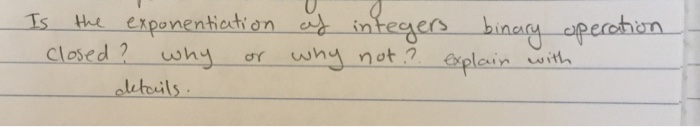 Is the exponentiation of integers binary operation
closed? why or why not? explain with
details.